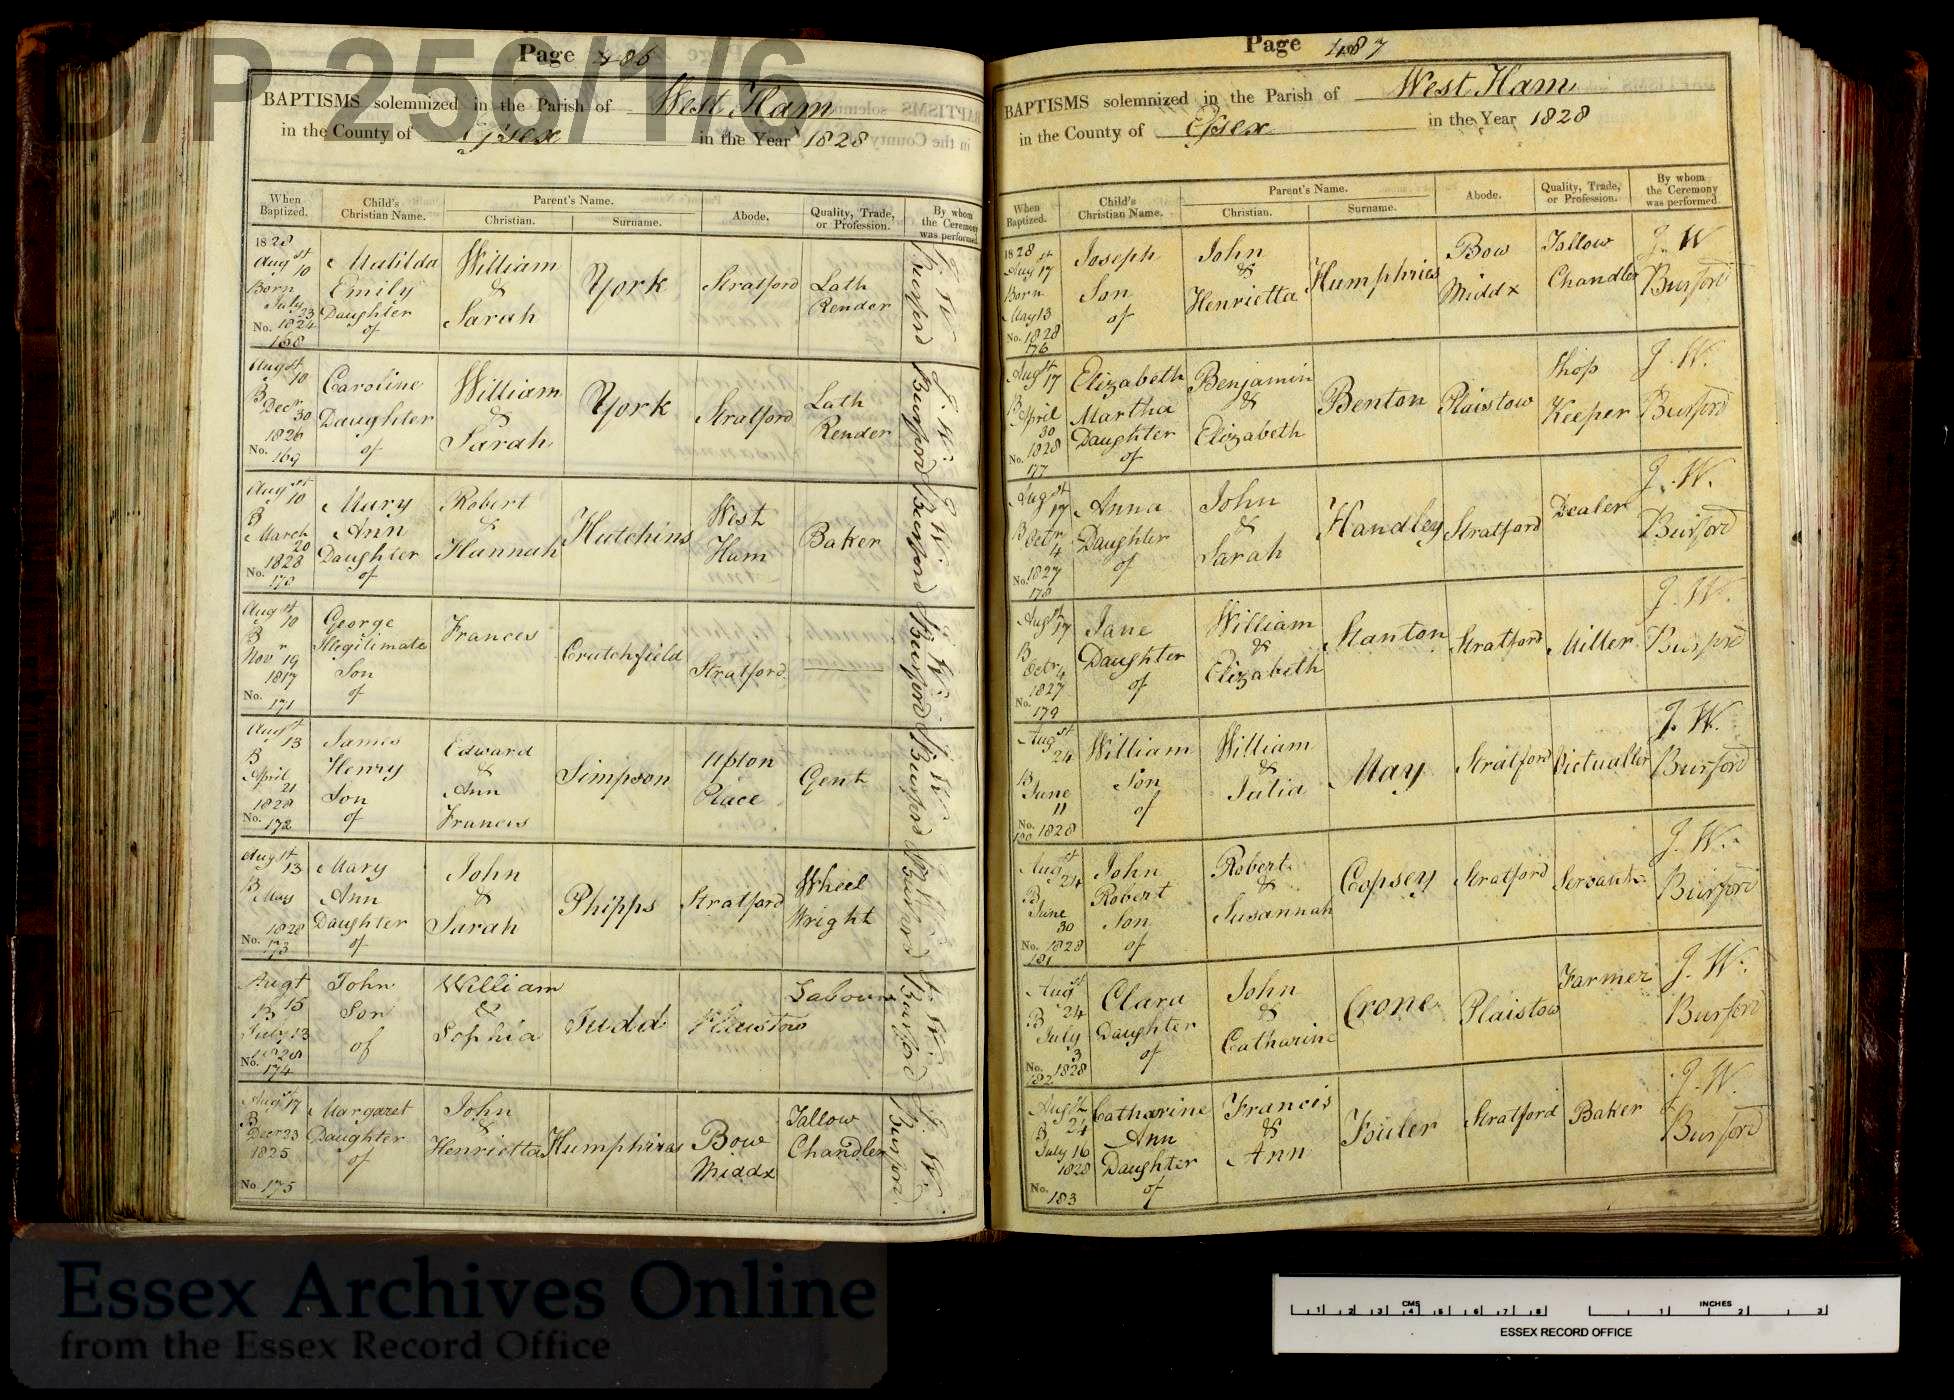 D/P 256/1/6
Page 486
BAPTISMS solemnized in the Parish of West Ham
in the County of Essex in the Year 1828
When Baptized. Child's Christian Name. Parent's Name. Christian. Surname. Abode. Quality, Trade, or Profession. By whom the Ceremony was performed.
1828 Augst 10 Born July 23 1824 No. 168 Matilda Emily Daughter of William & Sarah York Stratford Lath Render J. W. Burford
Augst 10 B Decr 30 1826 No. 169 Caroline Daughter of William & Sarah York Stratford Lath Render J. W. Burford
Augst 10 B March 20 1828 No. 170 Mary Ann Daughter of Robert & Hannah Hutchins West Ham Baker J. W. Burford
Augst 10 B Novr 19 1817 No. 171 George Illegitimate Son of Frances Crutchfield Stratford J. W. Burford
Augst 13 B April 21 1828 No. 172 James Henry Son of Edward & Ann Frances Simpson Upton Place Gent J. W. Burford
Augst 13 B May 1828 No. 173 Mary Ann Daughter of John & Sarah Phipps Stratford Wheel Wright J. W. Burford
Augt 15 B July 13 1828 No. 174 John Son of William & Sophia Judd Plaistow Labourer J. W. Burford
Augst 17 B Decr 23 1825 No 175 Margaret Daughter of John & Henrietta Humphries Bow Middx Tallow Chandler J. W. Burford
Page 487
BAPTISMS solemnized in the Parish of West Ham
in the County of Essex in the Year 1828
When Baptized. Child's Christian Name. Parent's Name. Christian. Surname. Abode. Quality, Trade, or Profession. By whom the Ceremony was performed
1828 Augst 17 Born May 13 1828 No. 176 Joseph Son of John & Henrietta Humphries Bow Middx Tallow Chandler J. W. Burford
Augst 17 B April 30 1828 No. 177 Elizabeth Martha Daughter of Benjamin & Elizabeth Benton Plaistow Shop Keeper J. W. Burford
Augst 17 B Octr 4 1827 No. 178 Anna Daughter of John & Sarah Handley Stratford Dealer J. W. Burford
Augst 17 B Octr 4 1827 No. 179 Jane Daughter of William & Elizabeth Stanton Stratford Miller J. W. Burford
Augst 24 B June 11 1828 No. 180 William Son of William & Julia May Stratford Victualler J. W. Burford
Augst 24 B June 30 1828 No. 181 John Robert Son of Robert & Susannah Copsey Stratford Servant J. W. Burford
Augst 24 B July 3 1828 No. 182 Clara Daughter of John & Catharine Crone Plaistow Farmer J. W. Burford
Augst 24 B July 16 1828 No. 183 Catharine Ann Daughter of Francis & Ann Stratford Baker J. W. Burford
Essex Archives Online
from the Essex Record Office
CMS 1 2 3 4 5 6 7 8 INCHES 1 2 3
ESSEX RECORD OFFICE